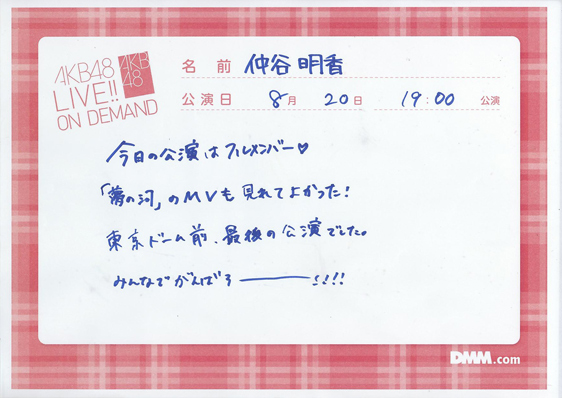 AKB48
LIVE!!
ON DEMAND
AKB
48
名前 仲谷明香
公演日 8月 20日 19:00 公演
今日の公演はフルメンバー♡
「夢の河」のMVも見れてよかった!
東京ドーム前、最後の公演でした。
みんなでがんばろ———!!!!
DMM.com